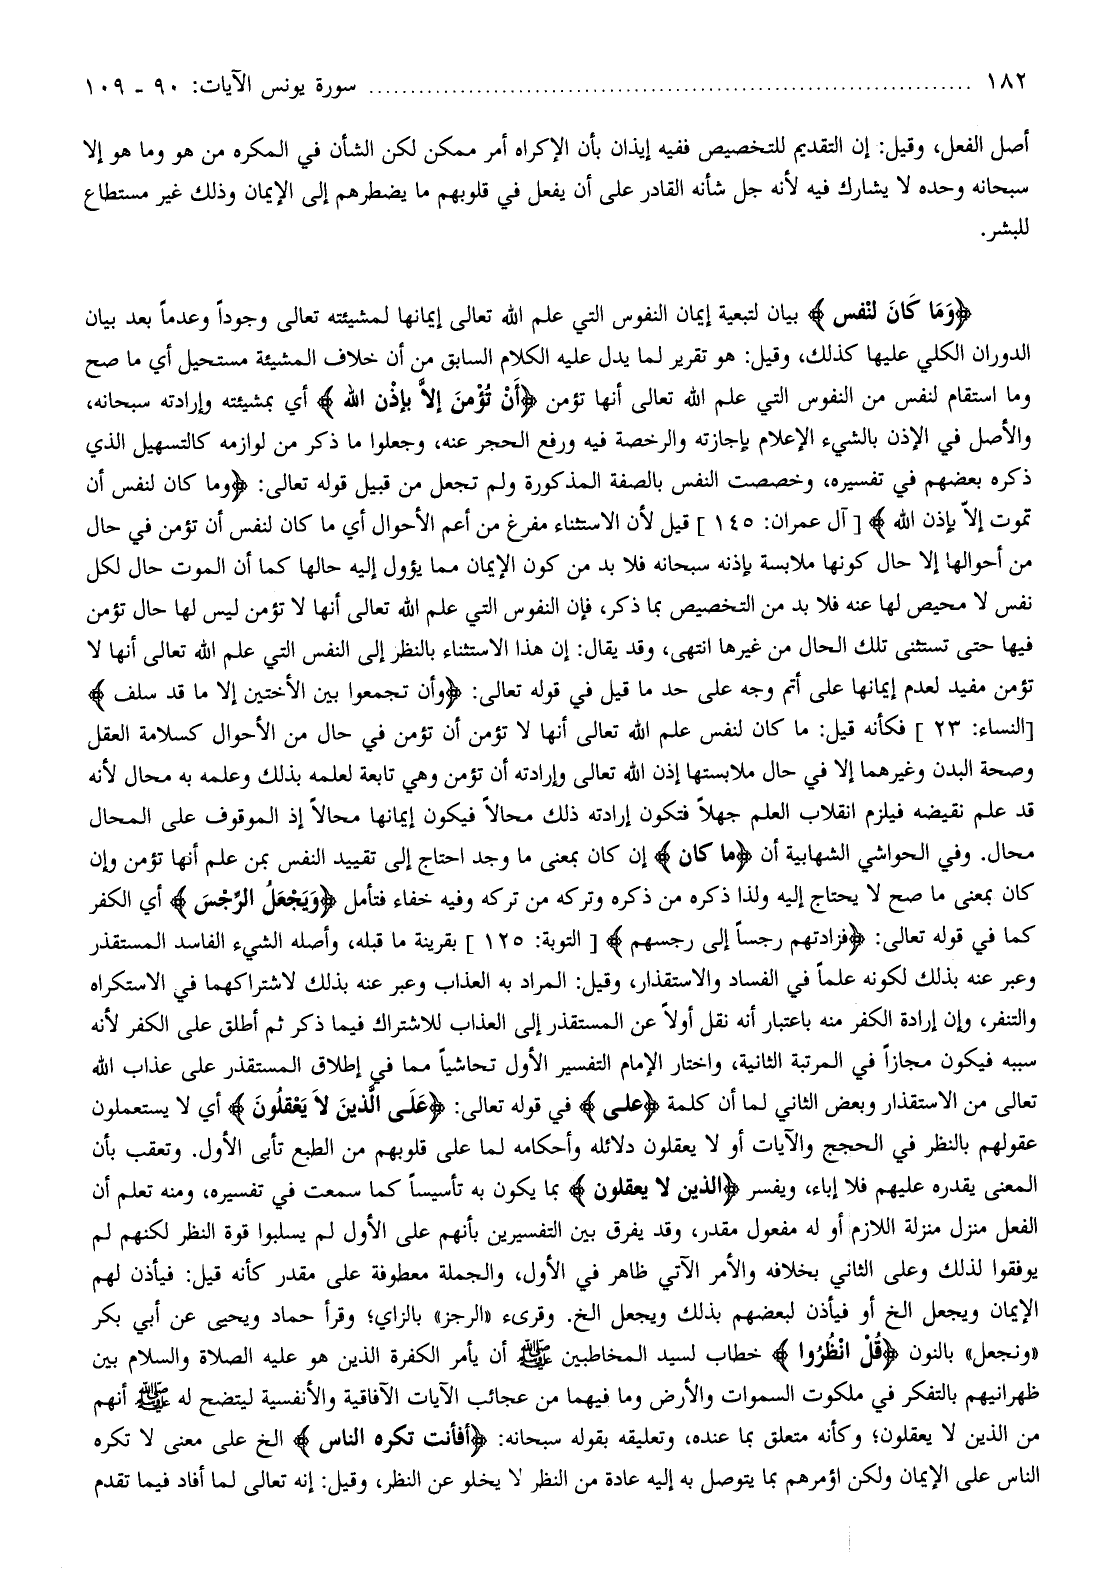 ١٨٢ ........................................................................ سورة يونس الآيات: ٩٠ ـ ١٠٩
أصل الفعل، وقيل: إن التقديم للتخصيص ففيه إيذان بأن الإكراه أمر ممكن لكن الشأن في المكره من هو وما هو إلا
سبحانه وحده لا يشارك فيه لأنه جل شأنه القادر على أن يفعل في قلوبهم ما يضطرهم إلى الإيمان وذلك غير مستطاع
للبشر.
﴿وَمَا كَانَ لنْفس﴾ بيان لتبعية إيمان النفوس التي علم الله تعالى إيمانها لمشيئته تعالى وجوداً وعدماً بعد بيان
الدوران الكلي عليها كذلك، وقيل: هو تقرير لما يدل عليه الكلام السابق من أن خلاف المشيئة مستحيل أي ما صح
وما استقام لنفس من النفوس التي علم الله تعالى أنها تؤمن ﴿أَنْ تُؤْمنَ إلاَّ بإذْن الله﴾ أي بمشيئته وإرادته سبحانه،
والأصل في الإذن بالشيء الإعلام بإجازته والرخصة فيه ورفع الحجر عنه، وجعلوا ما ذكر من لوازمه كالتسهيل الذي
ذكره بعضهم في تفسيره، وخصصت النفس بالصفة المذكورة ولم تجعل من قبيل قوله تعالى: ﴿وما كان لنفس أن
تموت إلاّ بإذن الله﴾ [ آل عمران: ١٤٥ ] قيل لأن الاستثناء مفرغ من أعم الأحوال أي ما كان لنفس أن تؤمن في حال
من أحوالها إلا حال كونها ملابسة بإذنه سبحانه فلا بد من كون الإيمان مما يؤول إليه حالها كما أن الموت حال لكل
نفس لا محيص لها عنه فلا بد من التخصيص بما ذكر، فإن النفوس التي علم الله تعالى أنها لا تؤمن ليس لها حال تؤمن
فيها حتى تستثنى تلك الحال من غيرها انتهى، وقد يقال: إن هذا الاستثناء بالنظر إلى النفس التي علم الله تعالى أنها لا
تؤمن مفيد لعدم إيمانها على أتم وجه على حد ما قيل في قوله تعالى: ﴿وأن تجمعوا بين الأختين إلا ما قد سلف﴾
[النساء: ٢٣ ] فكأنه قيل: ما كان لنفس علم الله تعالى أنها لا تؤمن أن تؤمن في حال من الأحوال كسلامة العقل
وصحة البدن وغيرهما إلا في حال ملابستها إذن الله تعالى وإرادته أن تؤمن وهي تابعة لعلمه بذلك وعلمه به محال لأنه
قد علم نقيضه فيلزم انقلاب العلم جهلاً فتكون إرادته ذلك محالاً فيكون إيمانها محالاً إذ الموقوف على المحال
محال. وفي الحواشي الشهابية أن ﴿ما كان﴾ إن كان بمعنى ما وجد احتاج إلى تقييد النفس بمن علم أنها تؤمن وإن
كان بمعنى ما صح لا يحتاج إليه ولذا ذكره من ذكره وتركه من تركه وفيه خفاء فتأمل ﴿وَيَجْعَلُ الرِّجْسَ﴾ أي الكفر
كما في قوله تعالى: ﴿فزادتهم رجساً إلى رجسهم﴾ [ التوبة: ١٢٥ ] بقرينة ما قبله، وأصله الشيء الفاسد المستقذر
وعبر عنه بذلك لكونه علماً في الفساد والاستقذار، وقيل: المراد به العذاب وعبر عنه بذلك لاشتراكهما في الاستكراه
والتنفر، وإن إرادة الكفر منه باعتبار أنه نقل أولاً عن المستقذر إلى العذاب للاشتراك فيما ذكر ثم أطلق على الكفر لأنه
سببه فيكون مجازاً في المرتبة الثانية، واختار الإمام التفسير الأول تحاشياً مما في إطلاق المستقذر على عذاب الله
تعالى من الاستقذار وبعض الثاني لما أن كلمة ﴿على﴾ في قوله تعالى: ﴿عَلَى الَّذينَ لاَ يَعْقلُونَ﴾ أي لا يستعملون
عقولهم بالنظر في الحجج والآيات أو لا يعقلون دلائله وأحكامه لما على قلوبهم من الطبع تأبى الأول. وتعقب بأن
المعنى يقدره عليهم فلا إباء، ويفسر ﴿الذين لا يعقلون﴾ بما يكون به تأسيساً كما سمعت في تفسيره، ومنه تعلم أن
الفعل منزل منزلة اللازم أو له مفعول مقدر، وقد يفرق بين التفسيرين بأنهم على الأول لم يسلبوا قوة النظر لكنهم لم
يوفقوا لذلك وعلى الثاني بخلافه والأمر الآتي ظاهر في الأول، والجملة معطوفة على مقدر كأنه قيل: فيأذن لهم
الإيمان ويجعل الخ أو فيأذن لبعضهم بذلك ويجعل الخ. وقرىء «الرجز» بالزاي؛ وقرأ حماد ويحيى عن أبي بكر
«ونجعل» بالنون ﴿قُلْ انْظُرُوا﴾ خطاب لسيد المخاطبين ﷺ أن يأمر الكفرة الذين هو عليه الصلاة والسلام بين
ظهرانيهم بالتفكر في ملكوت السموات والأرض وما فيهما من عجائب الآيات الآفاقية والأنفسية ليتضح له ﷺ أنهم
من الذين لا يعقلون؛ وكأنه متعلق بما عنده، وتعليقه بقوله سبحانه: ﴿أفأنت تكره الناس﴾ الخ على معنى لا تكره
الناس على الإيمان ولكن اؤمرهم بما يتوصل به إليه عادة من النظر لا يخلو عن النظر، وقيل: إنه تعالى لما أفاد فيما تقدم